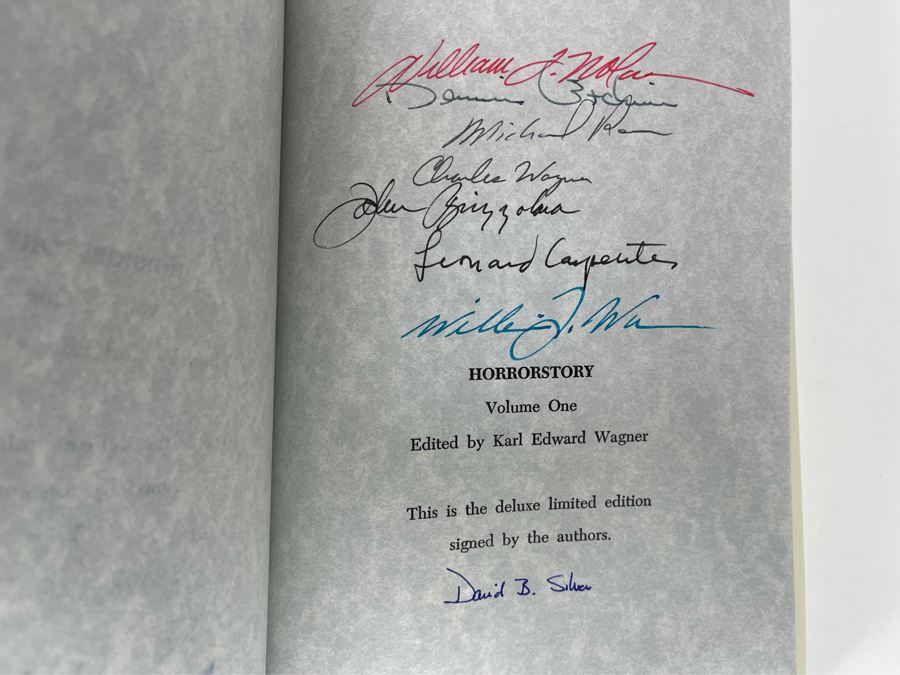 William F. Nolan
Dennis Etchison
Michael
Charles Wagner
John Brizzolara
Leonard Carpenter
HORRORSTORY
Volume One
Edited by Karl Edward Wagner
This is the deluxe limited edition
signed by the authors.
David B. Silva